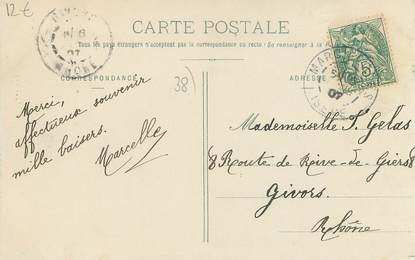 12€
CARTE POSTALE
Tous les pays étrangers n'acceptent pas la correspondance au recto. (Se renseigner à la
CORRESPONDANCE
ADRESSE
38)
RHONE
07
5
Merci,
affectueux souvenir
mille baisers.
Marcelle
Mademoiselle J. Gelas
8 Route de Rive-de-Giers 8
Givors.
Rhône